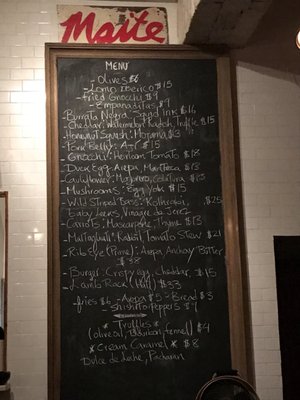 Maite
MENU
- Olives $6
- Lomo Iberico $15
- Fried Gnocchi $9
- Empanaditas $9
- Burrata Negra, Squid Ink $16
- Cheddar, Watermelon Radish, $15
- Honeynut Squash: Mojama $13
- Pork Belly: $15
- Gnocchi: Heirloom Tomato $18
- Duck Egg: Arepa, Manteca $13
- Cauliflower: $15
- Mushrooms: Egg Yolk $15
- Wild Striped Bass: Kohlrabi, $25
Baby Leeks, Vinagre de Jerez
- Carrots: Mascarpone, Thyme $13
- Maltagliati: Rabbit Tomato Stew $21
- Rib Eye (Prime): Arepa, Anchovy Butter
- $38
- Burger: Crispy egg, Cheddar, $15
- Lamb Rack (Half) $33
- fries $6 - Arepa $5 - Bread $3
- Shishito Peppers $7
* Truffles *
(olive oil, Bourbon, fennel) $4
* Cream Caramel * $8
Dulce de Leche,